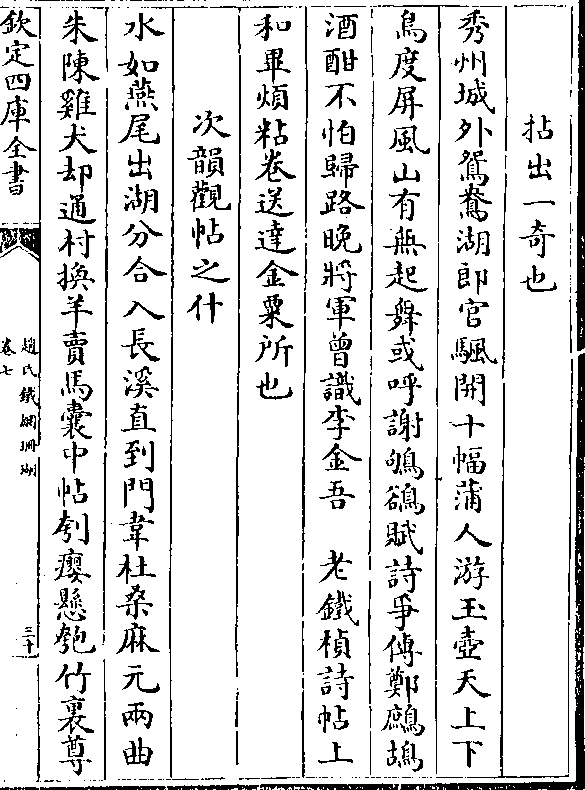 拈出一奇也
秀州城外鴛鴦湖郎官颿開十幅蒲人游玉壺天上下
鳥度屏風山有無起舞或呼謝鴝鵒賦詩爭傳鄭鷓鴣
酒酣不怕歸路晚將軍曾識李金吾　老鐵楨詩帖上
和畢煩粘卷送達金粟所也
次韻觀帖之什
水如燕尾出湖分合入長溪直到門韋杜桑麻元兩曲
朱陳雞犬却通村換羊賣馬囊中帖刳癭懸匏竹裏尊
欽定四庫全書
趙氏鐵網珊瑚
卷七
三十